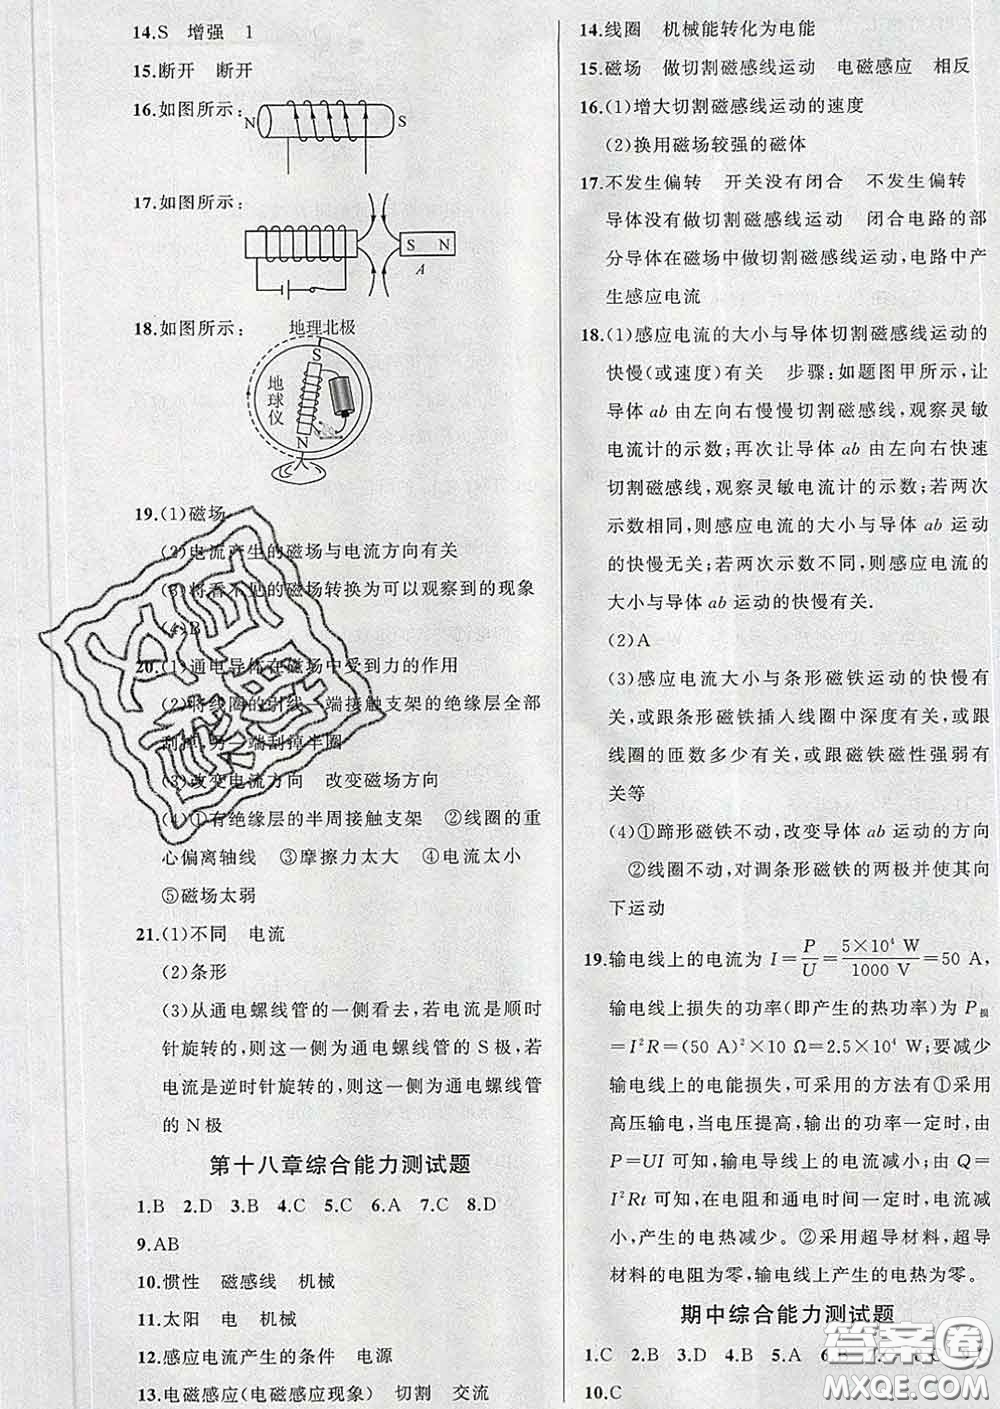 14.S 增强 1
15.断开 断开
16.如图所示:
N S
17.如图所示:
S N
A
18.如图所示:
地理北极
S
地球仪
N
19.(1)磁场
(2)电流产生的磁场与电流方向有关
(3)将看不见的磁场转换为可以观察到的现象
(4)B
20.(1)通电导体在磁场中受到力的作用
(2)将线圈的引线一端接触支架的绝缘层全部
刮掉,另一端刮掉半圈
(3)改变电流方向 改变磁场方向
(4)①有绝缘层的半周接触支架 ②线圈的重
心偏离轴线 ③摩擦力太大 ④电流太小
⑤磁场太弱
21.(1)不同 电流
(2)条形
(3)从通电螺线管的一侧看去,若电流是顺时
针旋转的,则这一侧为通电螺线管的S极,若
电流是逆时针旋转的,则这一侧为通电螺线管
的N极
第十八章综合能力测试题
1.B 2.D 3.B 4.C 5.C 6.A 7.C 8.D
9.AB
10.惯性 磁感线 机械
11.太阳 电 机械
12.感应电流产生的条件 电源
13.电磁感应(电磁感应现象) 切割 交流
14.线圈 机械能转化为电能
15.磁场 做切割磁感线运动 电磁感应 相反
16.(1)增大切割磁感线运动的速度
(2)换用磁场较强的磁体
17.不发生偏转 开关没有闭合 不发生偏转
导体没有做切割磁感线运动 闭合电路的部
分导体在磁场中做切割磁感线运动,电路中产
生感应电流
18.(1)感应电流的大小与导体切割磁感线运动的
快慢(或速度)有关 步骤:如题图甲所示,让
导体ab由左向右慢慢切割磁感线,观察灵敏
电流计的示数;再次让导体ab由左向右快速
切割磁感线,观察灵敏电流计的示数;若两次
示数相同,则感应电流的大小与导体ab运动
的快慢无关;若两次示数不同,则感应电流的
大小与导体ab运动的快慢有关.
(2)A
(3)感应电流大小与条形磁铁运动的快慢有
关,或跟条形磁铁插入线圈中深度有关,或跟
线圈的匝数多少有关,或跟磁铁磁性强弱有
关等
(4)①蹄形磁铁不动,改变导体ab运动的方向
②线圈不动,对调条形磁铁的两极并使其向
下运动
19.输电线上的电流为I=P/U=5×10⁴ W/1000 V=50 A,
输电线上损失的功率(即产生的热功率)为P损
=I²R=(50 A)²×10 Ω=2.5×10⁴ W;要减少
输电线上的电能损失,可采用的方法有①采用
高压输电,当电压提高,输出的功率一定时,由
P=UI可知,输电导线上的电流减小;由Q=
I²Rt可知,在电阻和通电时间一定时,电流减
小,产生的电热减少。②采用超导材料,超导
材料的电阻为零,输电线上产生的电热为零。
期中综合能力测试题
1.C 2.B 3.D 4.B 5.A
10.C
答案圈
MXQE.COM